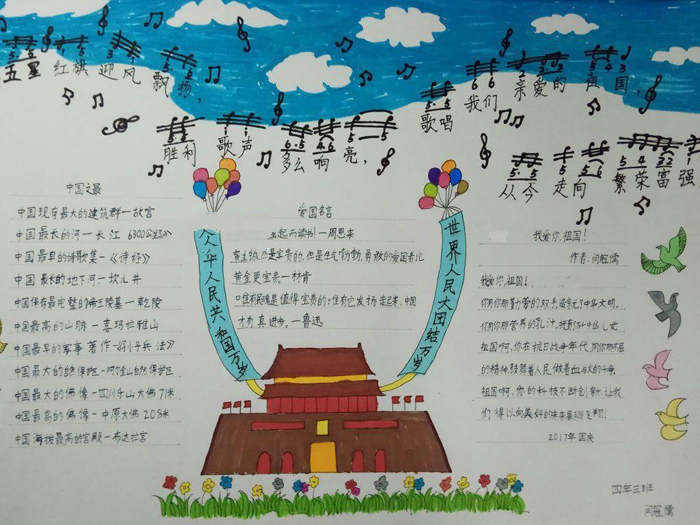 五星红旗迎风飘扬，
胜利歌声多么响亮，
歌唱我们亲爱的祖国，
从今走向繁荣富强
中国之最
中国现存最大的建筑群—故宫
中国最长的河—长江 6300公里
中国最早的诗歌集—《诗经》
中国最长的地下河—坎儿井
中国保存最完整的帝王陵墓—乾陵
中国最高的山脉—喜玛拉雅山
中国最早的军事著作—《孙子兵法》
中国最大的自然保护区—阿尔金山自然保护区
中国最大的佛像—四川乐山大佛71米
中国最高的佛像—中原大佛 208米
中国海拔最高的宫殿—布达拉宫
人华人民共和国万岁
世界人民大团结万岁
爱国名言
为中华之崛起而读书!—周恩来
黄金更宝贵—林肯
唯有民魂是值得宝贵的:唯有它发扬起来、中国
才有真进步。—鲁迅
我爱你,祖国!
作者:闫冠儒
我爱你,祖国!
你用你那勤劳的双手,
祖国啊,你在抗日战争年代,用你那
的精神鼓舞着人民,
祖国啊,你的科技不断创新,让我
们得以向美好的未来展翅飞翔!
2017年国庆
四年三班
闫冠儒